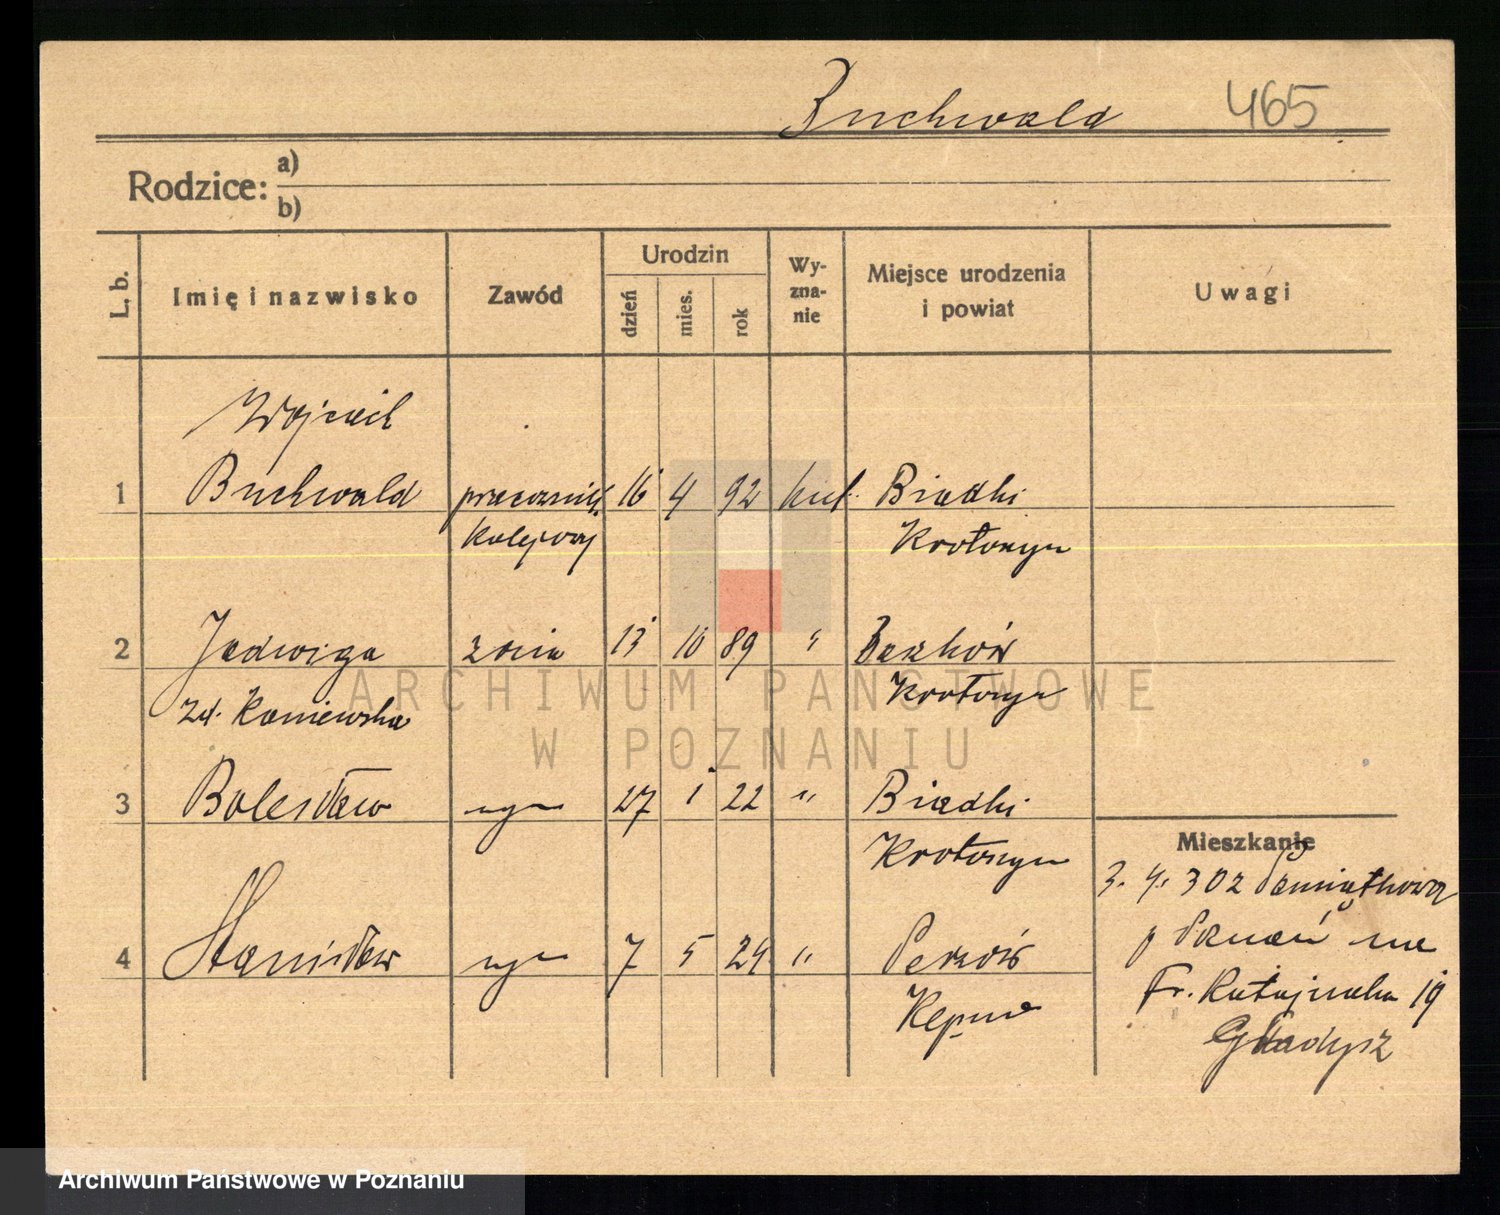 Buchwald 465
Rodzice: a)
b)
L. b. Imię i nazwisko Zawód Urodzin dzień mies. rok Wyznanie Miejsce urodzenia i powiat Uwagi
Wojciech
1 Buchwald pracownik 16 4 92 kat. Biadki
kolejowy Krotoszyn
2 Jadwiga żona 13 10 89 " 
zd. Kaniewska Krotoszyn
3 Bolesław syn 27 1 22 " Biadki
Krotoszyn
Mieszkanie
3. 4. 302 Pamiątkowa
4 Stanisław syn 7 5 24 " Perzów
Poznań
Kępno
Fr. Ratajczaka 19
Gładysz
ARCHIWUM PAŃSTWOWE
W POZNANIU
Archiwum Państwowe w Poznaniu